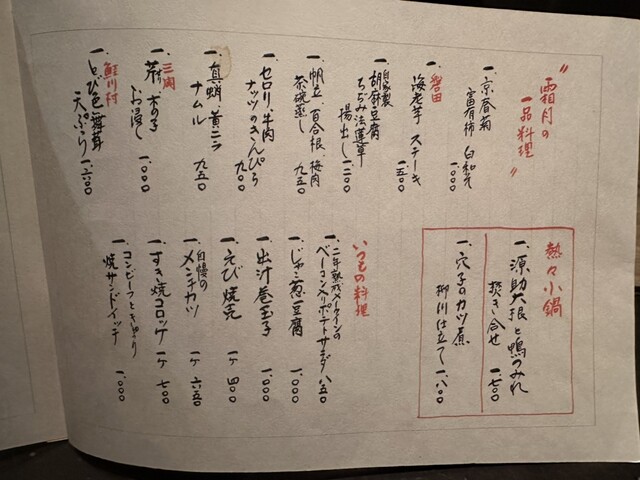 "霜月の
一品料理"
一、京春菊
富有柿 白和え
一、〇〇〇
磐田
一、海老芋 ステーキ
一、一五〇
一、自家製
胡麻豆腐
ちぢみ法蓮草
揚出し 一、二〇〇
一、帆立、百合根、梅肉
茶碗蒸し 九五〇
一、セロリ、牛肉
ナッツのきんぴら
九〇〇
一、真蛸、黄ニラ
ナムル 九五〇
三関
一、芹、木の子
お浸し 一、〇〇〇
鮭川村
一、とび色舞茸
天ぷら 一、二〇〇
熱々小鍋
一、源助大根と鴨つみれ
炊き合せ 一、七〇〇
一、穴子のカツ煮
柳川仕立て 一、八〇〇
いつもの料理
一、二年熟成メークインの
ベーコン入りポテトサラダ 八五〇
一、じゃこ葱豆腐 一、〇〇〇
一、出汁巻玉子 一、〇〇〇
一、えび焼売 一ケ 四〇〇
一、自慢の
メンチカツ 一ケ 六五〇
一、すき焼コロッケ 一ケ 七〇〇
一、コンビーフときゅうり
焼サンドイッチ 一、〇〇〇